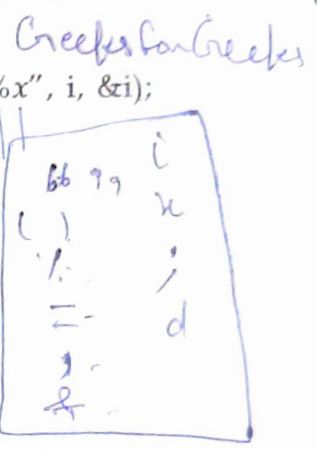 GeeksforGeeks
%x", i, &i);
“ ” i
( ) x
% ;
= d
,
&